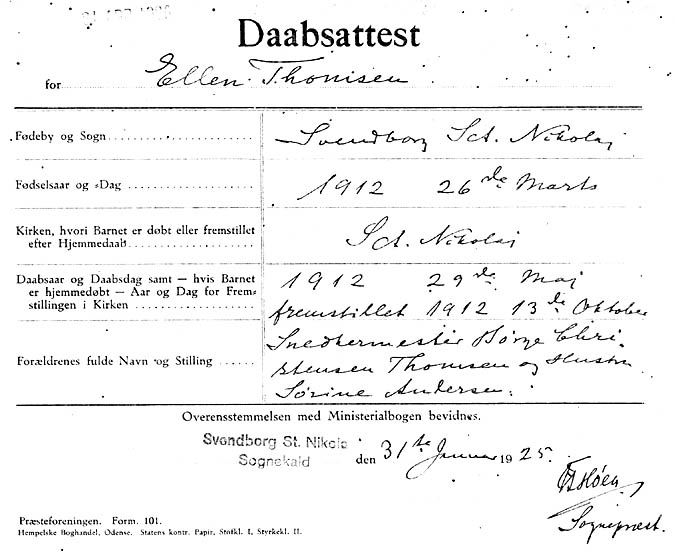 Daabsattest
for Ellen Thomsen
Fødeby og Sogn Svendborg Sct. Nikolaj
Fødselsaar og =Dag 1912 26de Marts
Kirken, hvori Barnet er døbt eller fremstillet
efter Hjemmedaab Sct. Nikolaj
Daabsaar og Daabsdag samt — hvis Barnet 1912 29de Maj
er hjemmedøbt — Aar og Dag for Frem=
stillingen i Kirken fremstillet 1912 13de Oktober
Snedkermester Børge Chri-
Forældrenes fulde Navn og Stilling stensen Thomsen og Hustru
Sørine Andersen.
Overensstemmelsen med Ministerialbogen bevidnes.
Svendborg St. Nikolai
Sognekald den 31te Januar 1925.
Sognepræst.
Præsteforeningen. Form. 101.
Hempelske Boghandel, Odense. Statens kontr. Papir, Stofkl. I, Styrkekl. II.